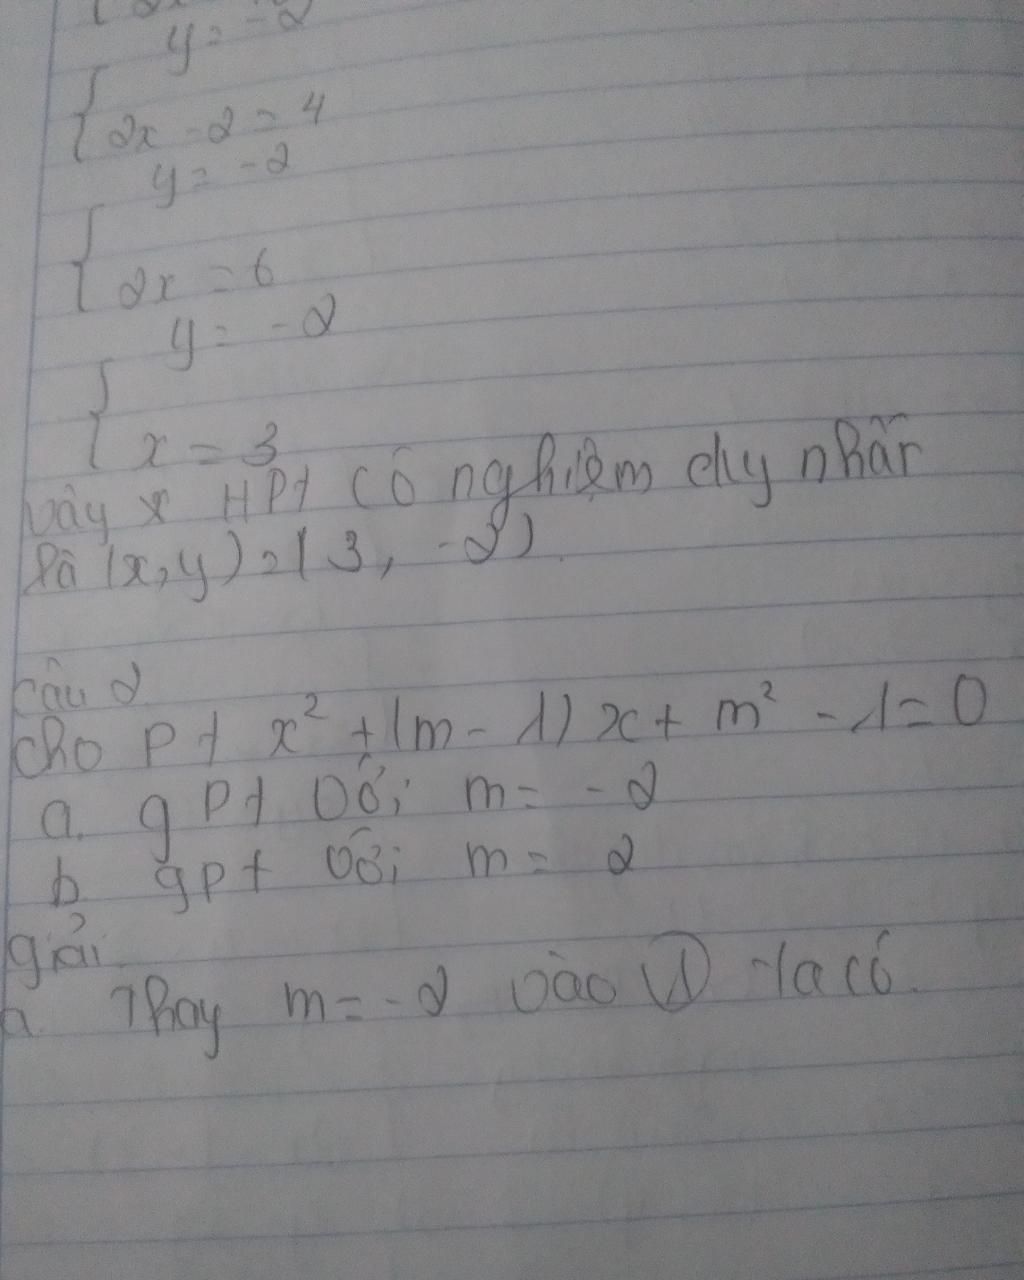 y = -2
{ 2x - 2 = 4
y = -2
{ 2x = 6
y = -2
{ x = 3
vậy x HPt có nghiệm duy nhất
là (x, y) = (3, -2).
câu 2
cho pt x² + (m - 1) x + m² - 1 = 0
a. g pt với m = -2
b. gpt với m = 2
giải
a. Thay m = -2 vào ① ta có.